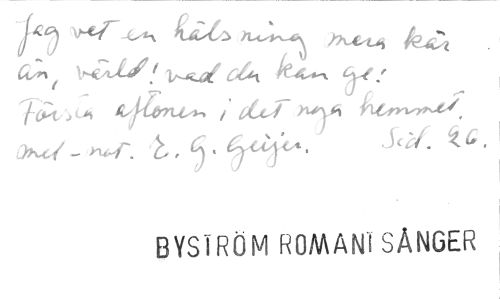 Jag vet en hälsning mera kär
än, värld! vad du kan ge!
Första aftonen i det nya hemmet.
mel-not. E. G. Geijer. Sid. 26.
BYSTRÖM ROMANI SÅNGER